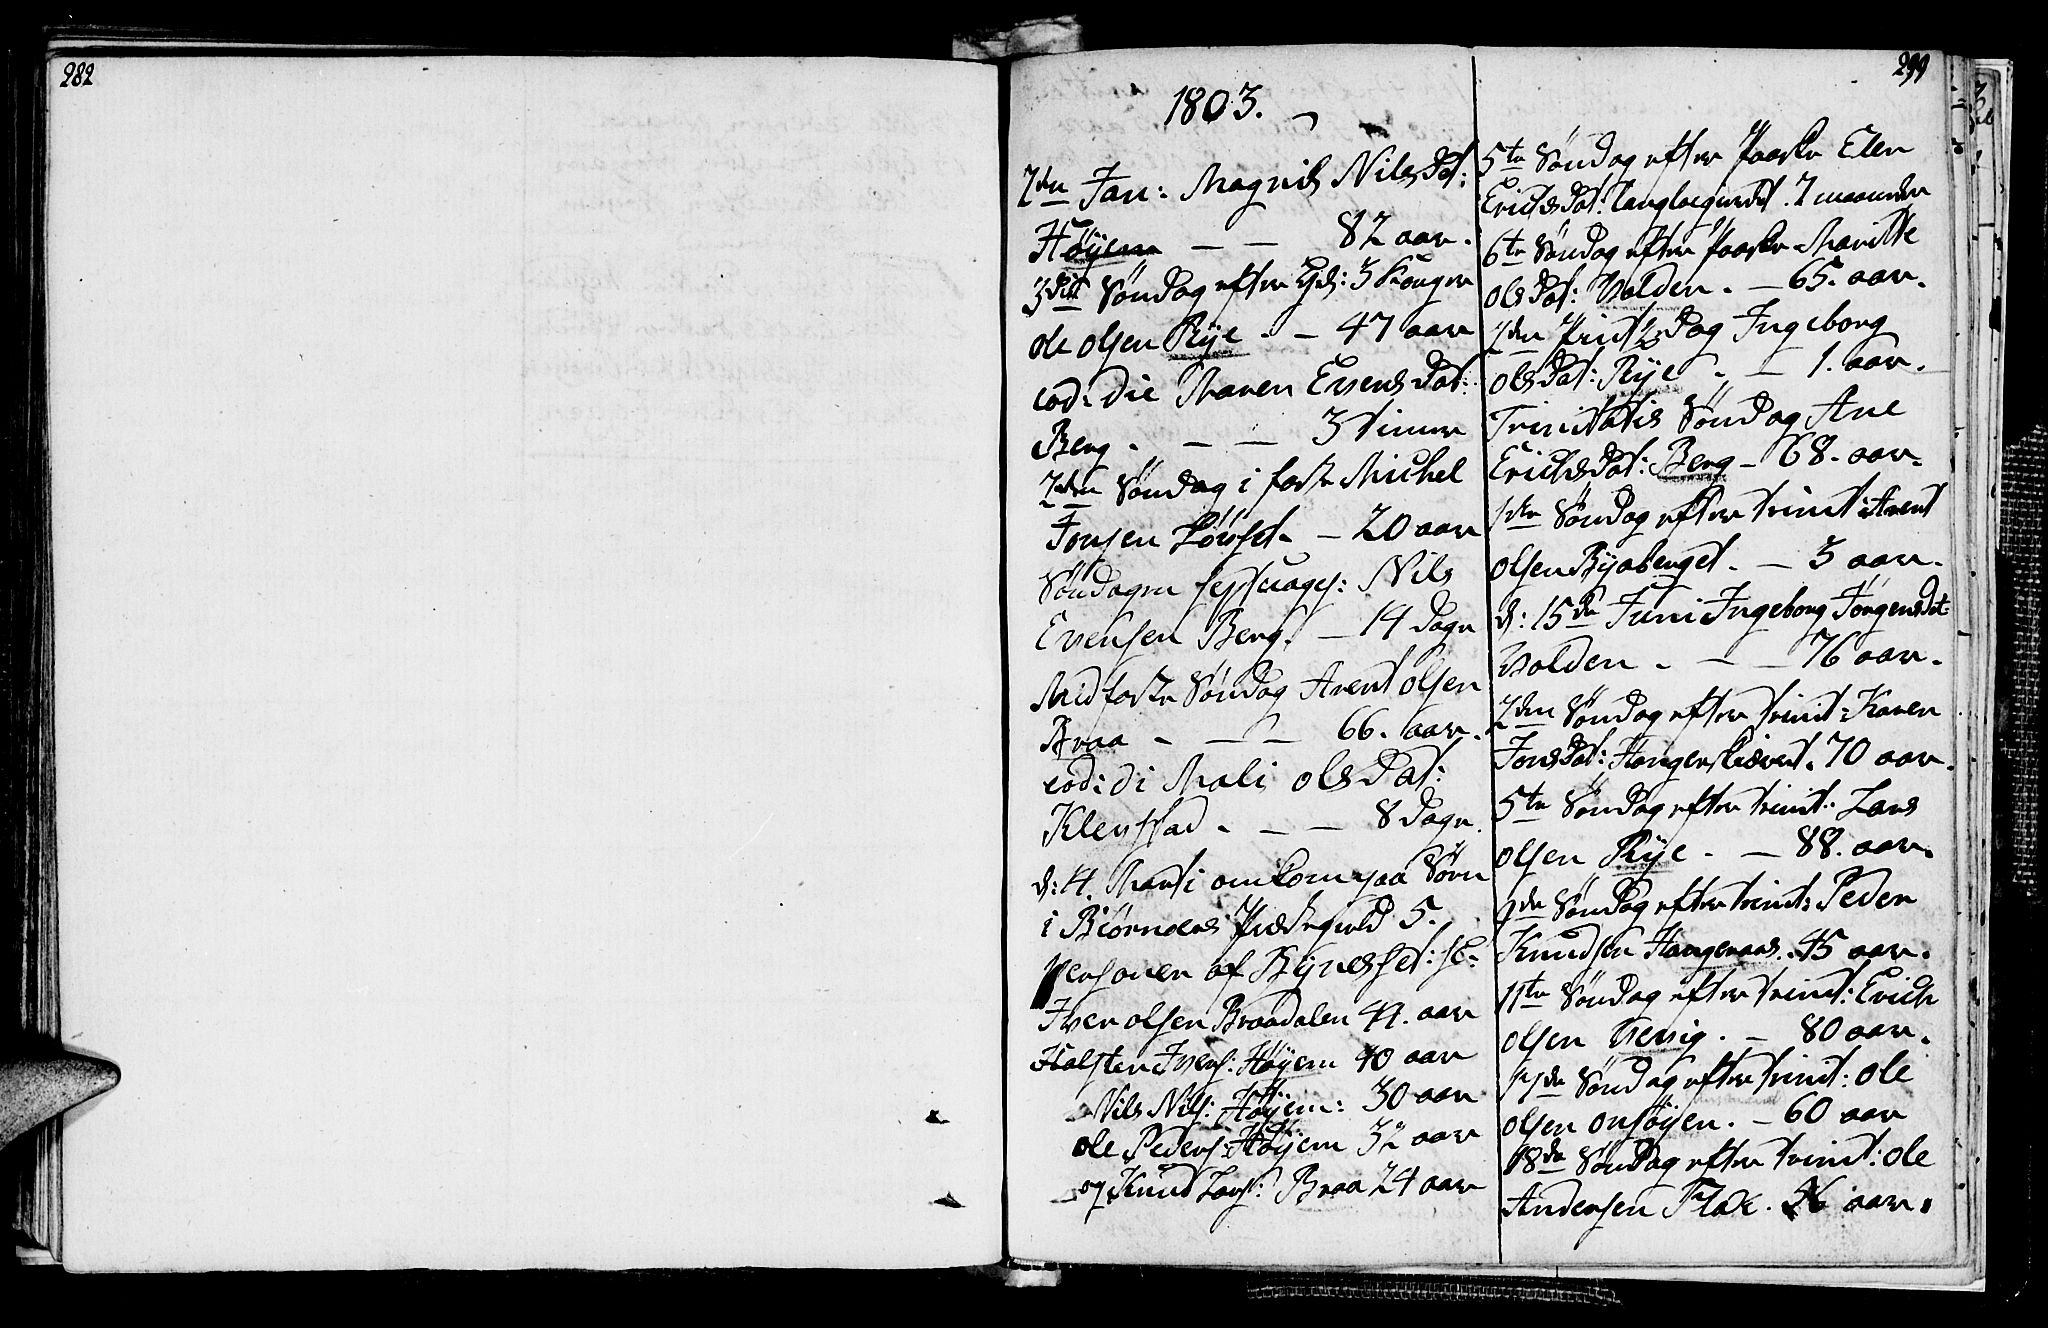 282
299
1803.
2den Jan: Magnil Nilsdat:
Høyem — — 82 aar.
3die Søndag efter H: 3 Konger
ole olsen Rye - — 47 aar
eod: die Maren Evensdat:
Berg. — — 3 timer
2den Søndag i faste Michel
Jonsen Løvset — 20 aar
Søndagen septuages: Nils
Evensen Berg. — 14 dage
Midfaste Søndag Arent olsen
Braa - — — 66. aar.
eod: di Mali olsdat:
Klefstad . — — 8 dage
d: 4. Marti omkom paa Søen
i Biørnøers Præstegield 5.
Personer af Bynesset:
Iver olsen Braadalen 44. aar
Halsten Ivers: Høyem 40 aar
Nils Nils: Høyem: 30 aar
ole Peders: Høyem 32 aar
og Knud Lars: Braa 24 aar
5te Søndag efter Paaske Elen
Erichsdat: 7 maaneder
6te Søndag efter Paaske Maritte
olsdat: Volden. — 65. aar.
2den Pintsdag Ingeborg
olsdat: Rye . — 1. aar.
Trinitatis Søndag Ane
Erichsdat: Berg — 68. aar.
1ste Søndag efter trinit: Arent
olsen Ryeberget. — 3 aar.
d: 15de Juni Ingeborg Jørgensdat:
Volden . — — 76 aar.
2den Søndag efter trinit: Karen
Jonsdat: 70 aar.
5te Søndag efter trinit: Lars
olsen Rye . — 88. aar.
Søndag efter trinit: Peder
Knudsen Hangeraas. 45 aar.
11te Søndag efter trinit: Erich
olsen . — 80 aar.
Søndag efter trinit: ole
olsen onsøyen. — 60 aar
18de Søndag efter trinit: ole
Andersen Flak. 56 aar.